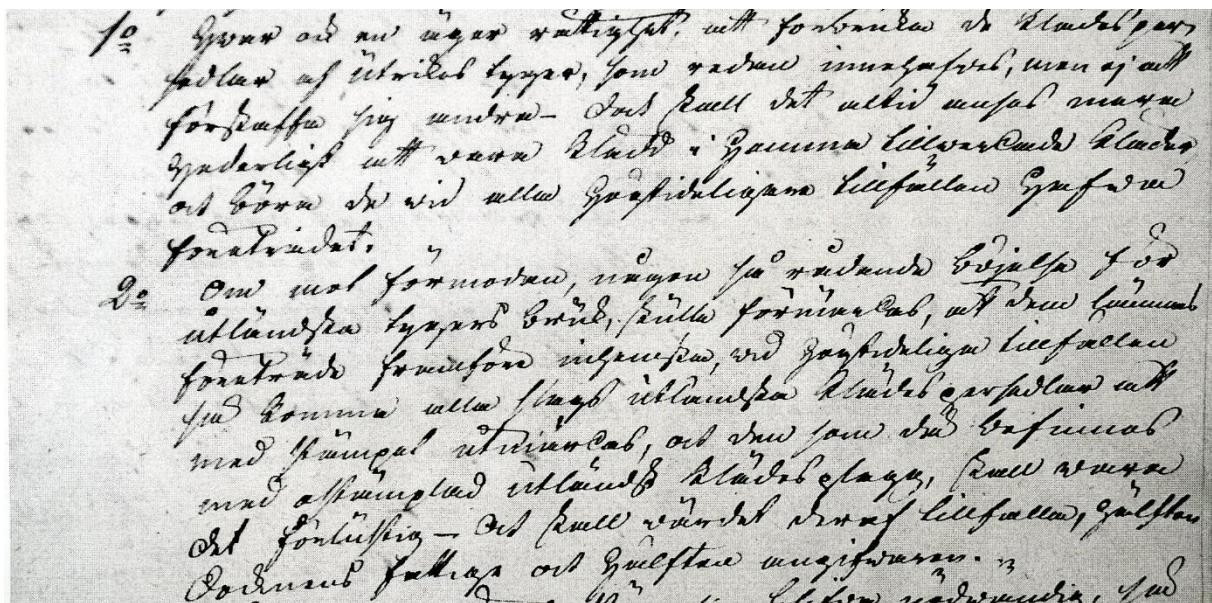 1º Hvar och en äger rättighet, att förbruka de klädesper
sedlar och utrikes tyger, som redan innehafves, men ej att
förskaffa sig andra – Dock skall det altid anses mera
hederligt att vara klädd i hemma tillverckade kläder
och böra de vid alla högtideligare tillfällen hafva
företrädet.
2º Om mot förmodan, någon så rådande böjelse för
utländska tygers bruk, skulle förmärckas, att dem lämnas
företräde framföre inhemska, vid högtideliga tillfällen
så komma alla slags utländska klädespersedlar att
med stämpel utmärckas, och den som då befinnes
med ostämplad utländsk klädesplagg, skall vara
det förlustig – Och skall värdet deraf tillfalla, hälften
Socknens fattige och hälften angifvaren.
blifva nödvändig, så